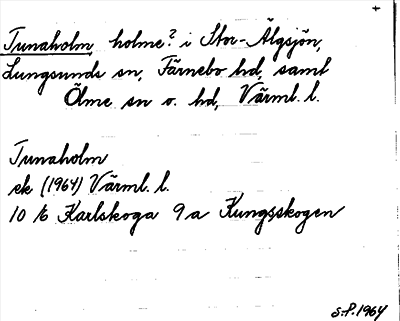 Tunaholm, holme? i Stor-Älgsjön,
Lungsunds sn, Färnebo hd, samt
Ölme sn o. hd, Värml. l.
Tunaholm
ek (1964) Värml. l.
10 E Karlskoga 9 a Kungsskogen
S.P. 1964